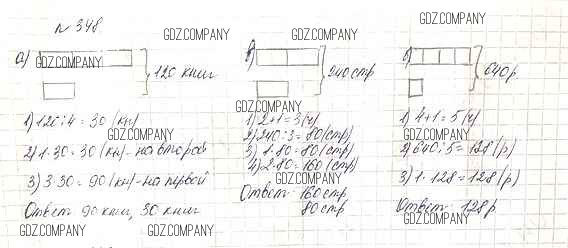 № 348
GDZ.COMPANY
GDZ.COMPANY
GDZ.COMPANY
а) GDZ.COMPANY 120 книг
1) 120:4=30 (кн)
GDZ.COMPANY
2) 1·30=30 (кн)-на второй
3) 3·30=90 (кн)-на первой
Ответ 90 книг, 30 книг
GDZ.COMPANY
GDZ.COMPANY
240 стр
GDZ.COMPANY
1) 2+1=3 (ч)
2) 240:3=80 (стр)
3) 1·80=80 (стр)
4) 2·80=160 (стр)
GDZ.COMPANY
Ответ 160 стр
80 стр
640 р.
1) 4+1=5 (ч)
GDZ.COMPANY
2) 640:5=128 (р)
3) 1·128=128 (р)
GDZ.COMPANY
Ответ 128 р
GDZ.COMPANY